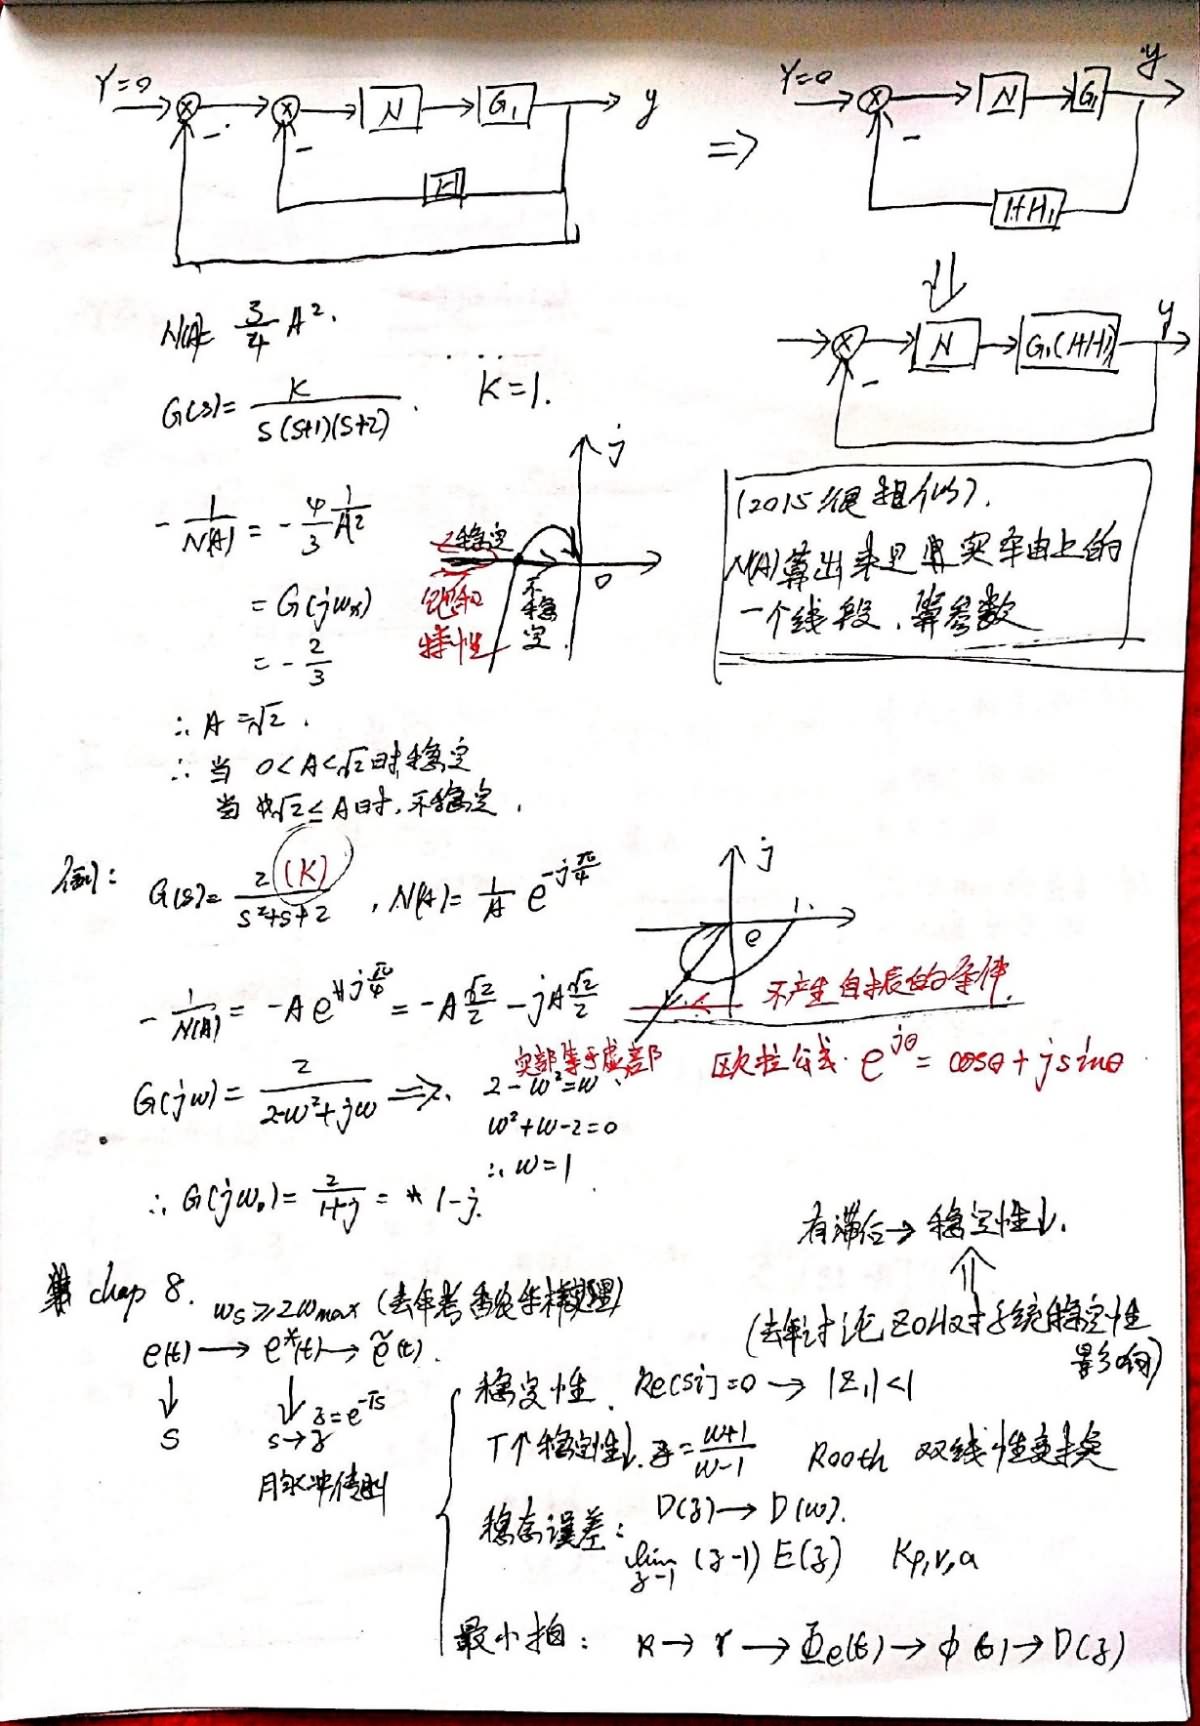 r=0 N G₁ y
H
⇒
r=0 N G₁ y
1+H₁
N G₁(1+H₁) y
N(A)= 3/4 A².
G(s)= K/(s(s+1)(s+2)). K=1.
j
-1/N(A) = -4/3 1/A²
= G(jωx)
= -2/3
稳定
0
不稳定.
饱和
特性
(2015很想似).
N(A)算出来是实轴上的
一个线段、算参数
∴ A=√2.
∴ 当 0<A<√2时,稳定
当√2≤A时,不稳定.
例: G(s)= 2(K)/(s²+s+2) , N(A)= 1/A e^{-jπ/4}
j
1.
-1/N(A) = -A e^{jπ/4} = -A √2/2 - jA √2/2
不产生自振的条件.
实部等于虚部
欧拉公式. e^{jθ} = cosθ + jsinθ
G(jω)= 2/(2-ω²+jω) ⇒ 2-ω²=ω
ω²+ω-2=0
∴ ω=1
∴ G(jω₀)= 2/(1+j) = 1-j.
有滞后→稳定性↓.
(去年讨论ZOH对系统稳定性
影响)
chap 8. ωs≥2ωmax (去年考香农采样定理)
e(t) → e*(t) → ẽ(t).
↓ ↓ z=e^{-Ts}
s s→z
脉冲传函
稳定性. Re[si]=0 → |Z₁|<1
T↑稳定性↓. z= (w+1)/(w-1) Rooth 双线性变换
D(z)→D(w).
稳态误差: lim z→1 (z-1) E(z) Kp,v,a
最小拍: R→r→Φe(z)→Φ(z)→D(z)